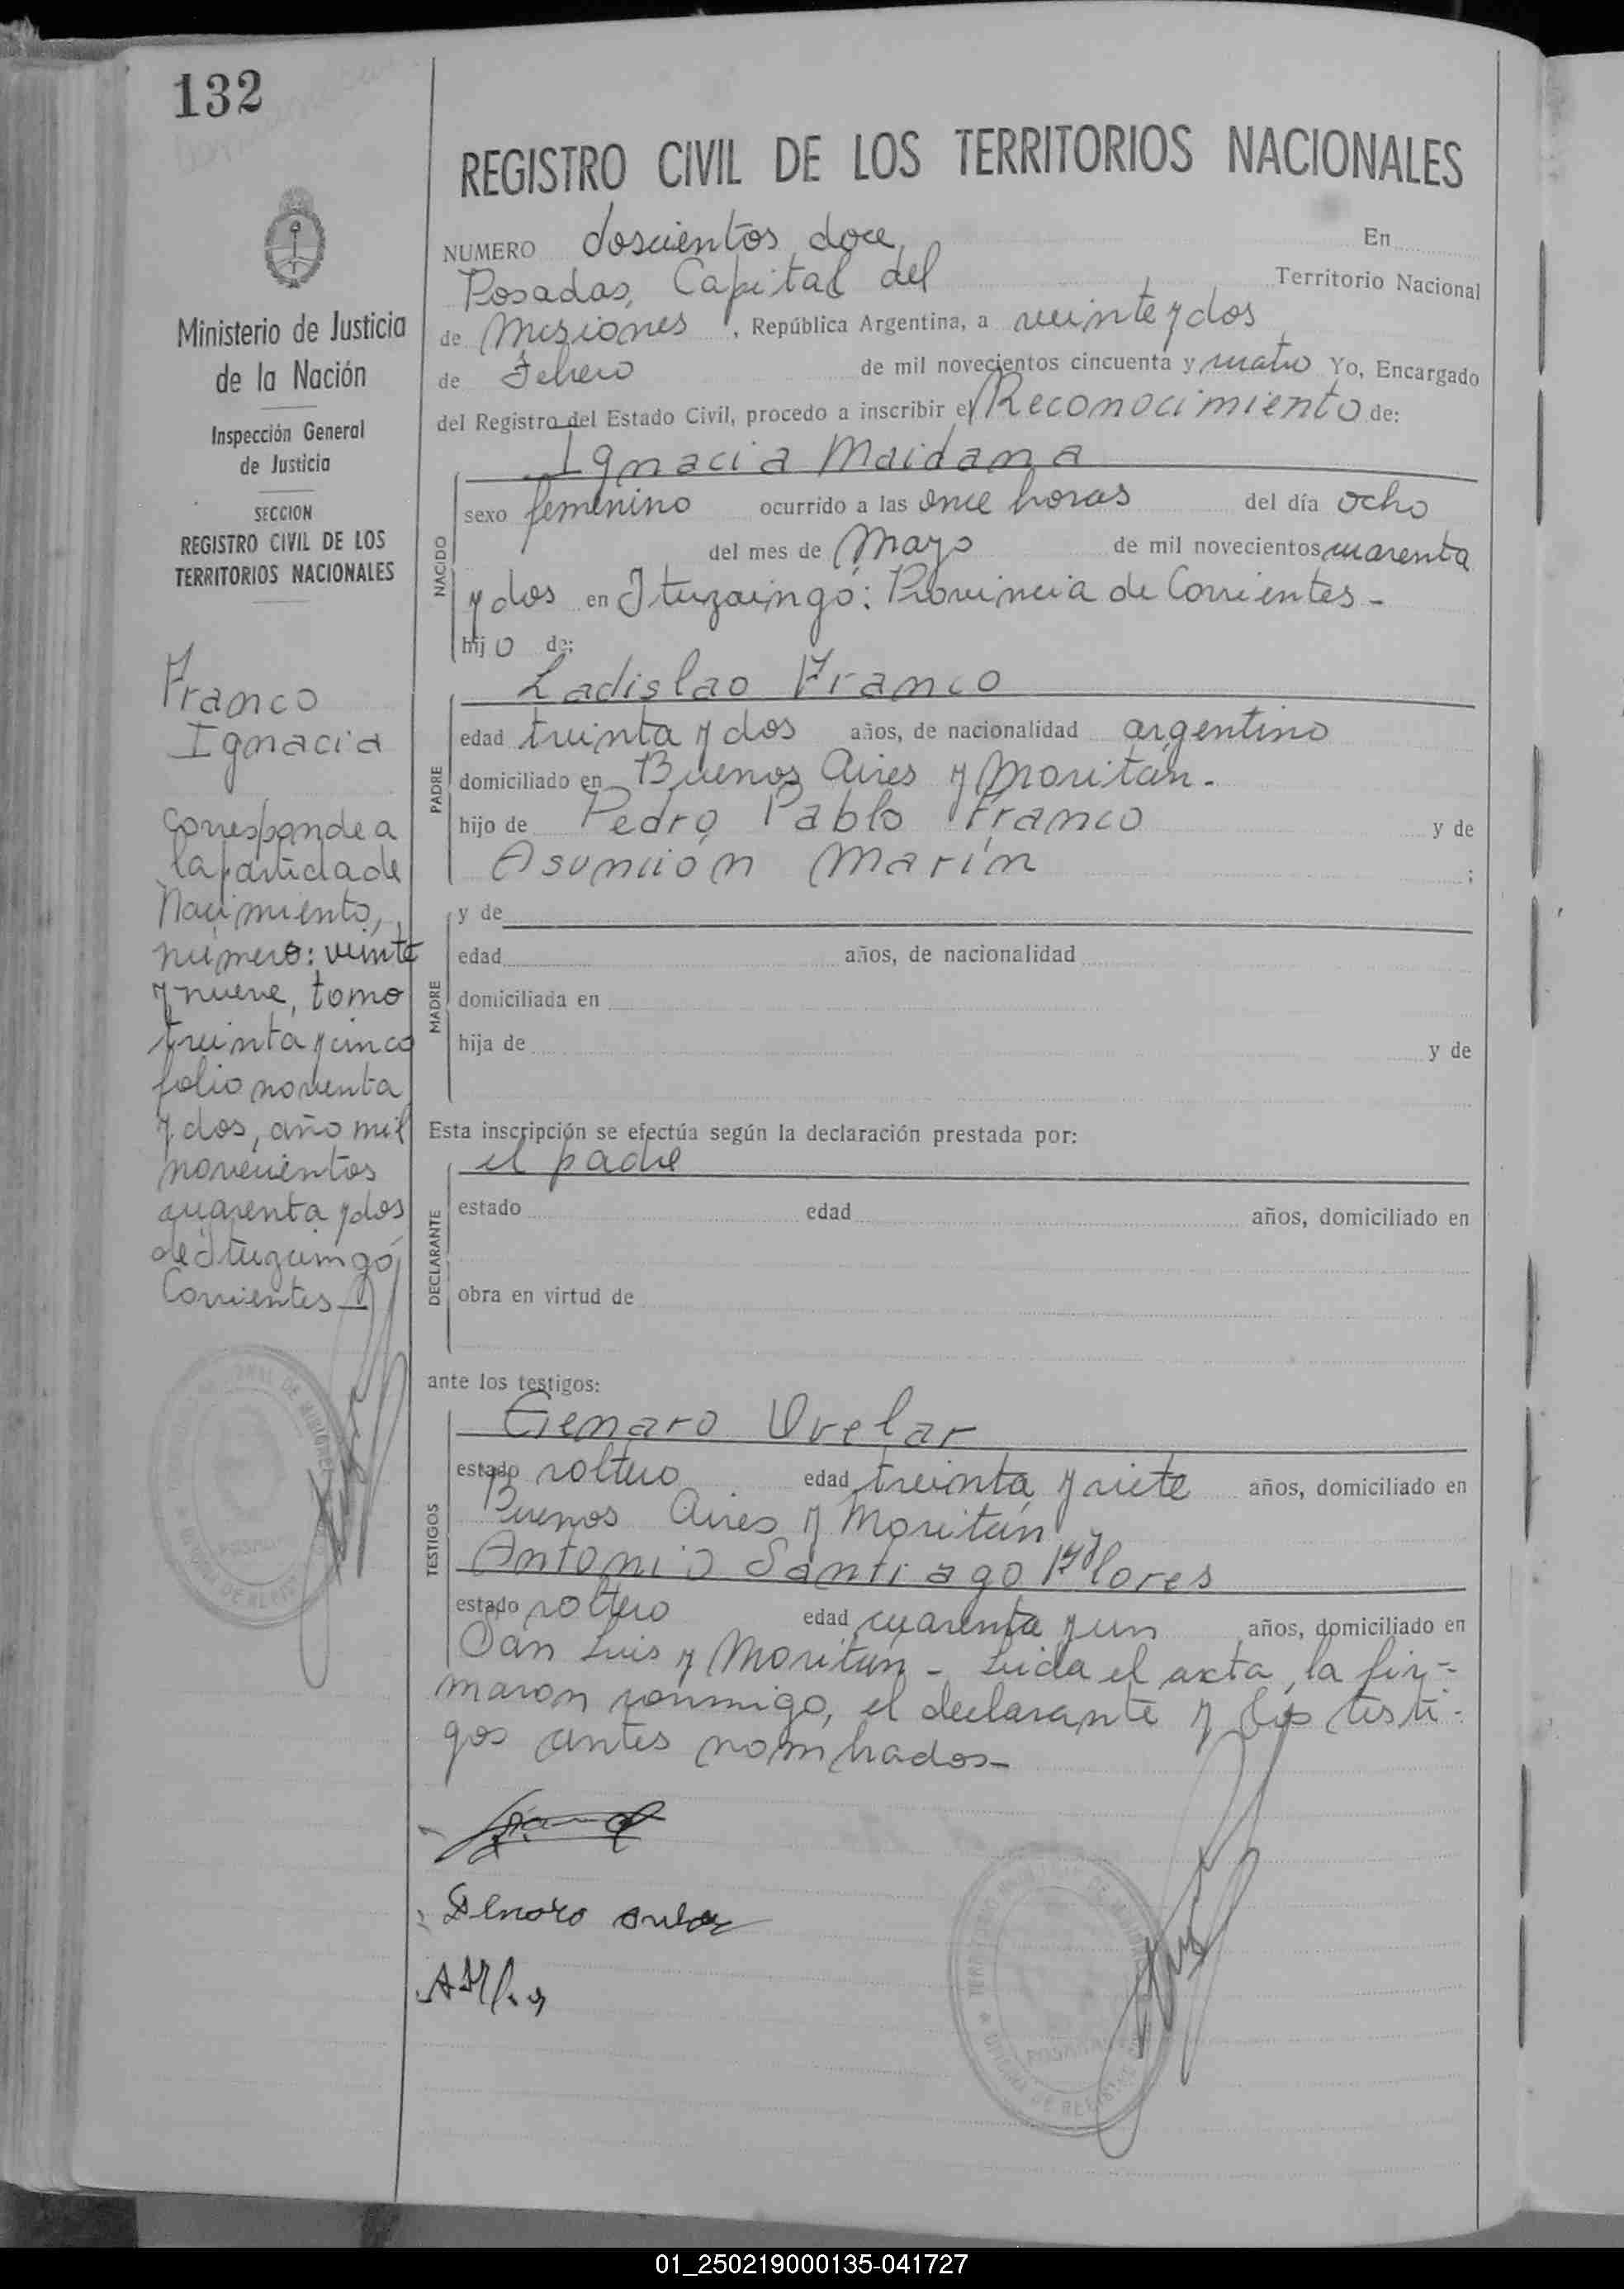 132
REGISTRO CIVIL DE LOS TERRITORIOS NACIONALES
Ministerio de Justicia
de la Nación
Inspección General
de Justicia
SECCION
REGISTRO CIVIL DE LOS
TERRITORIOS NACIONALES
Franco
Ignacia
Corresponde a
la partida de
Nacimiento,
número: veinte
y nueve, tomo
treinta y cinco
folio noventa
y dos, año mil
novecientos
cuarenta y dos
de Ituzaingó,
Corrientes
NUMERO doscientos doce, En
Posadas, Capital del Territorio Nacional
de Misiones, República Argentina, a veinte y dos
de Febrero de mil novecientos cincuenta y cuatro Yo, Encargado
del Registro del Estado Civil, procedo a inscribir el Reconocimiento de:
Ignacia Maidana
NACIDO
sexo femenino ocurrido a las once horas del día ocho
del mes de Mayo de mil novecientos cuarenta
y dos en Ituzaingó: Provincia de Corrientes -
hijo de:
Ladislao Franco
PADRE
edad treinta y dos años, de nacionalidad argentino
domiciliado en Buenos Aires y Moritán.
hijo de Pedro Pablo Franco y de
Asunción Marín ;
MADRE
y de
edad años, de nacionalidad
domiciliada en
hija de y de
Esta inscripción se efectúa según la declaración prestada por:
el padre
DECLARANTE
estado edad años, domiciliado en
obra en virtud de
ante los testigos:
Genaro Ovelar
TESTIGOS
estado soltero edad treinta y siete años, domiciliado en
Buenos Aires y Moritán y
Antonio Santiago Flores
estado soltero edad cuarenta y un años, domiciliado en
San Luis y Moritán - Leida el acta, la fir=
maron conmigo, el declarante y los testi-
gos antes nombrados-
Genaro Ovelar
POSADAS
01_250219000135-041727